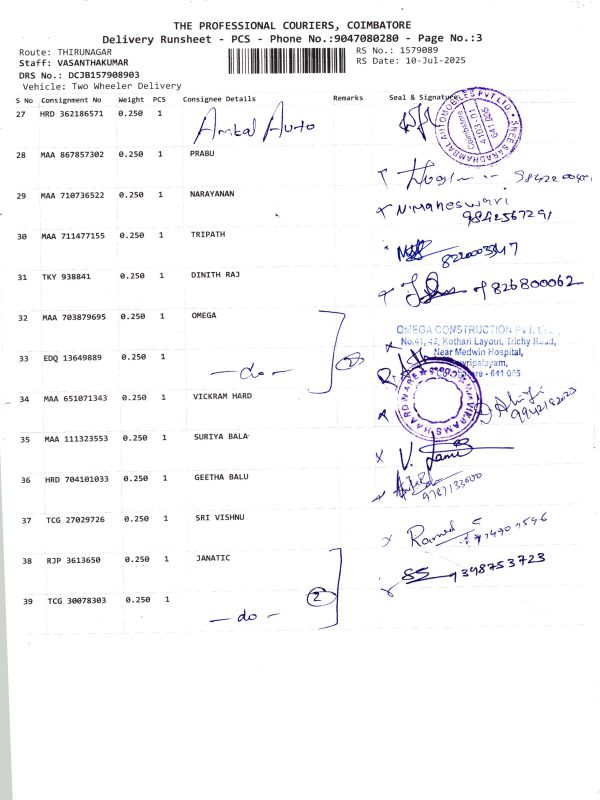 THE PROFESSIONAL COURIERS, COIMBATORE
Delivery Runsheet - PCS - Phone No.:9047080280 - Page No.:3
Route: THIRUNAGAR
RS No.: 1579089
Staff: VASANTHAKUMAR
RS Date: 10-Jul-2025
DRS No.: DCJB157908903
Vehicle: Two Wheeler Delivery
S No Consignment No Weight PCS Consignee Details Remarks Seal & Signature
27 HRD 362186571 0.250 1 Ambal Auto
28 MAA 867857302 0.250 1 PRABU
29 MAA 710736522 0.250 1 NARAYANAN
N.Maheswari
9842567291
30 MAA 711477155 0.250 1 TRIPATH
31 TKY 938841 0.250 1 DINITH RAJ
32 MAA 703879695 0.250 1 OMEGA
OMEGA CONSTRUCTION PVT. LTD.,
No.41, 42, Kothari Layout, Trichy Road,
Near Medwin Hospital,
- 641 005
33 EDQ 13649889 0.250 1 -do-
34 MAA 651071343 0.250 1 VICKRAM HARD
35 MAA 111323553 0.250 1 SURIYA BALA
36 HRD 704101033 0.250 1 GEETHA BALU
37 TCG 27029726 0.250 1 SRI VISHNU
38 RJP 3613650 0.250 1 JANATIC
9398753723
39 TCG 30078303 0.250 1 -do- 2